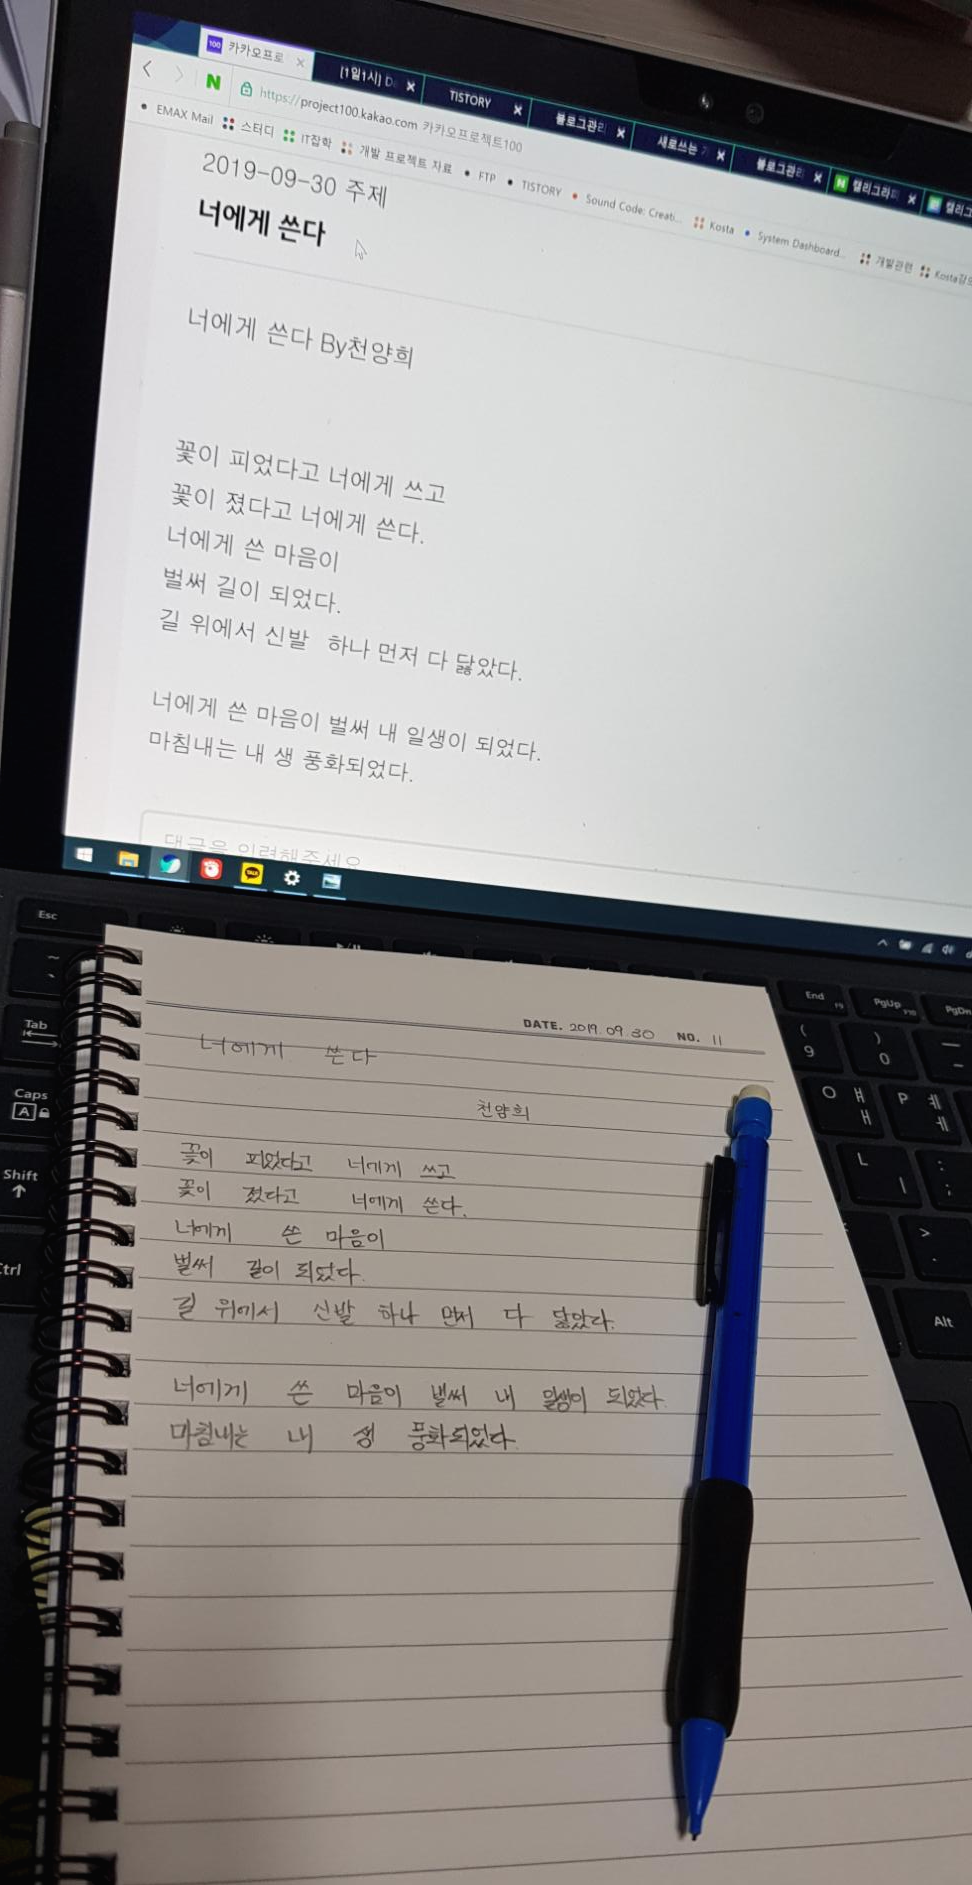 카카오프로
[1일1시]
TISTORY
블로그관리
새로쓰는
블로그관리
캘리그라피
캘리그
https://project100.kakao.com 카카오프로젝트100
EMAX Mail 스터디 IT잡학 개발 프로젝트 자료 FTP TISTORY Sound Code: Creati... Kosta System Dashboard... 개발관련 Kosta강의
2019-09-30 주제
너에게 쓴다
너에게 쓴다 By천양희
꽃이 피었다고 너에게 쓰고
꽃이 졌다고 너에게 쓴다.
너에게 쓴 마음이
벌써 길이 되었다.
길 위에서 신발 하나 먼저 다 닳았다.
너에게 쓴 마음이 벌써 내 일생이 되었다.
마침내는 내 생 풍화되었다.
댓글을 입력해주세요
Esc
Tab
Caps
A
Shift
Ctrl
End F9 PgUp F10 PgDn
( 9 ) 0 — -
O ㅒ ㅐ P ㅖ ㅔ
L ㅣ : ;
> .
Alt
DATE. 2019.09.30 NO. 11
너에게 쓴다
천양희
꽃이 피었다고 너에게 쓰고
꽃이 졌다고 너에게 쓴다.
너에게 쓴 마음이
벌써 길이 되었다.
길 위에서 신발 하나 먼저 다 닳았다.
너에게 쓴 마음이 벌써 내 일생이 되었다.
마침내는 내 생 풍화되었다.